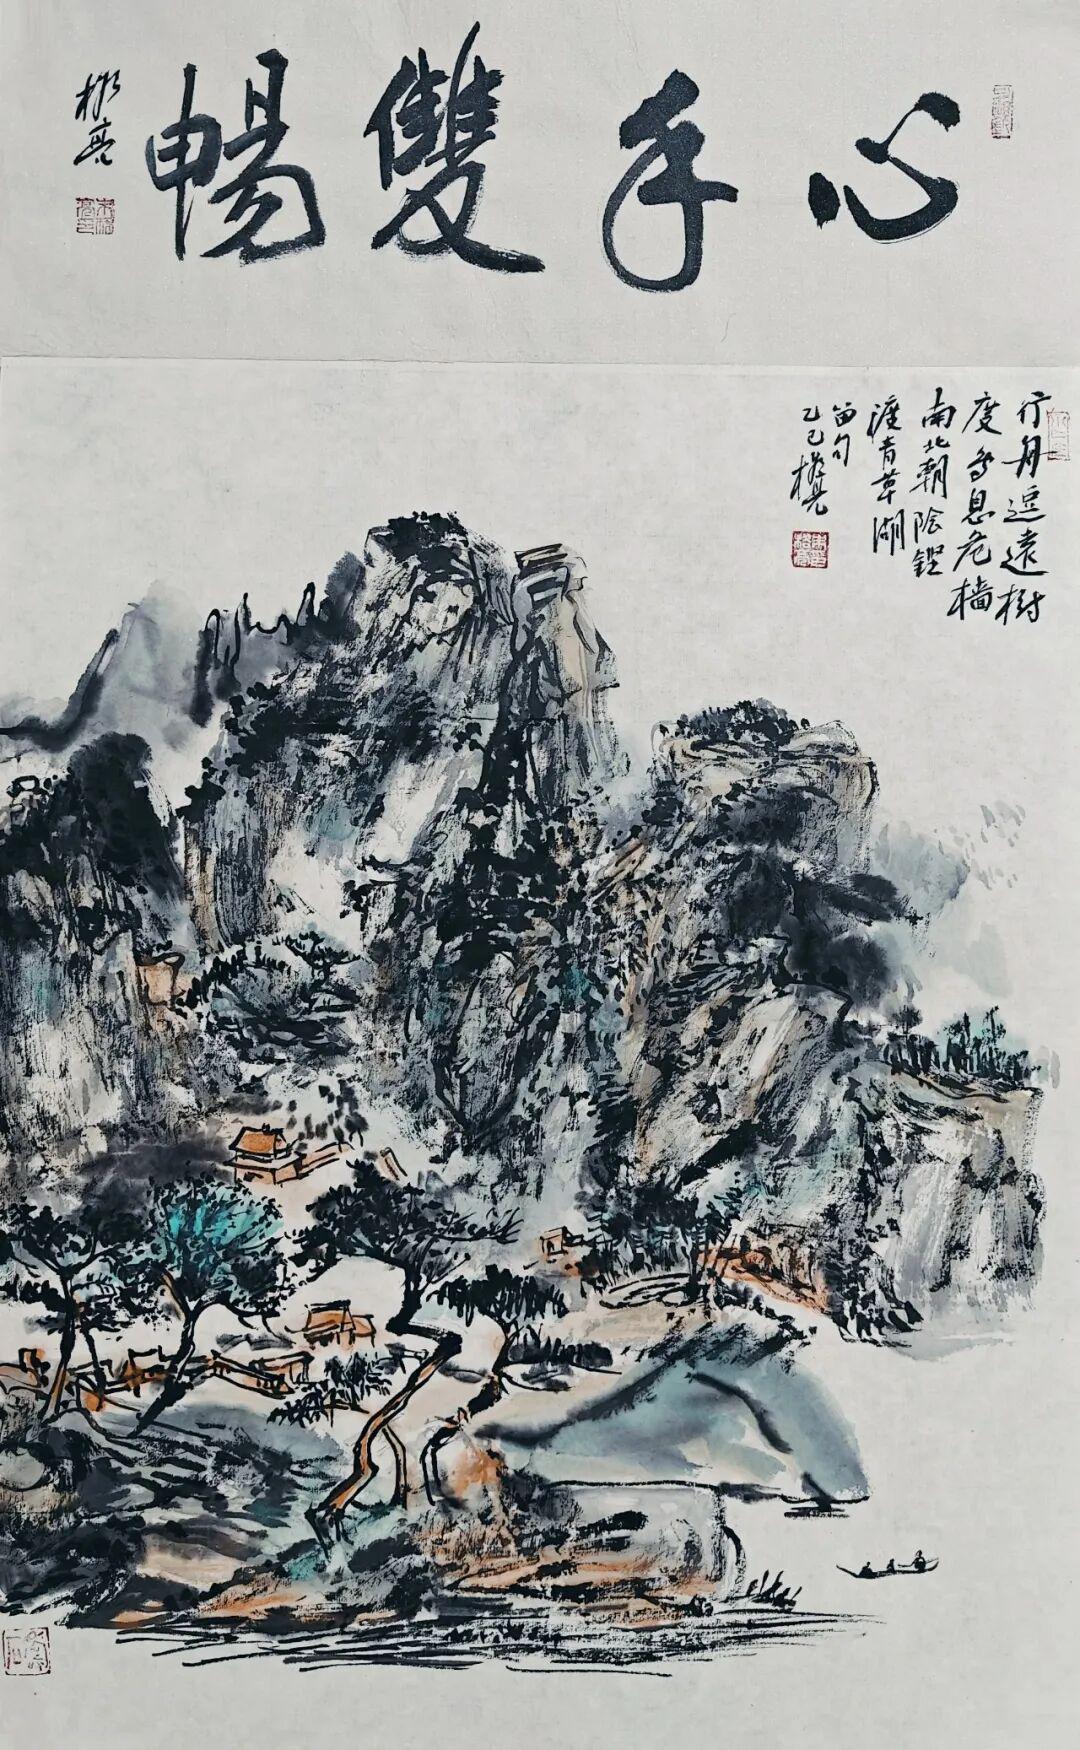 心手雙暢
行舟逗遠樹
度鳥息危檣
南北朝陰鏗
渡青草湖
句
乙巳